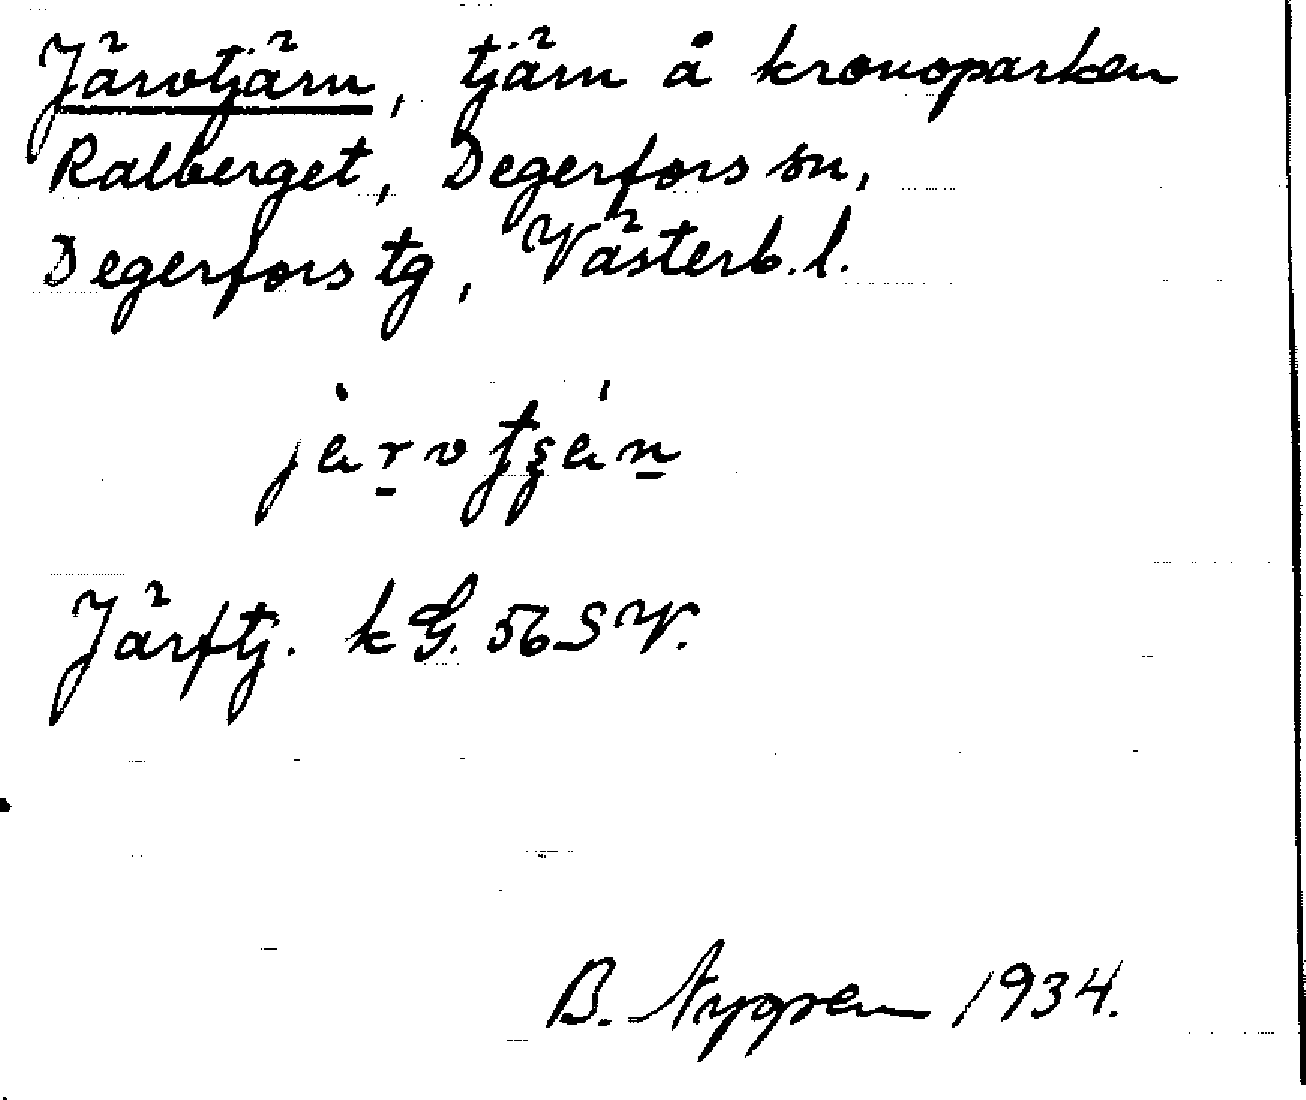 Järvtjärn, tjärn å kronoparken
Ralberget, Degerfors sn,
Degerfors tg, Västerb. l.
Järftj. k G. 56 SV.
B. Nygren 1934.